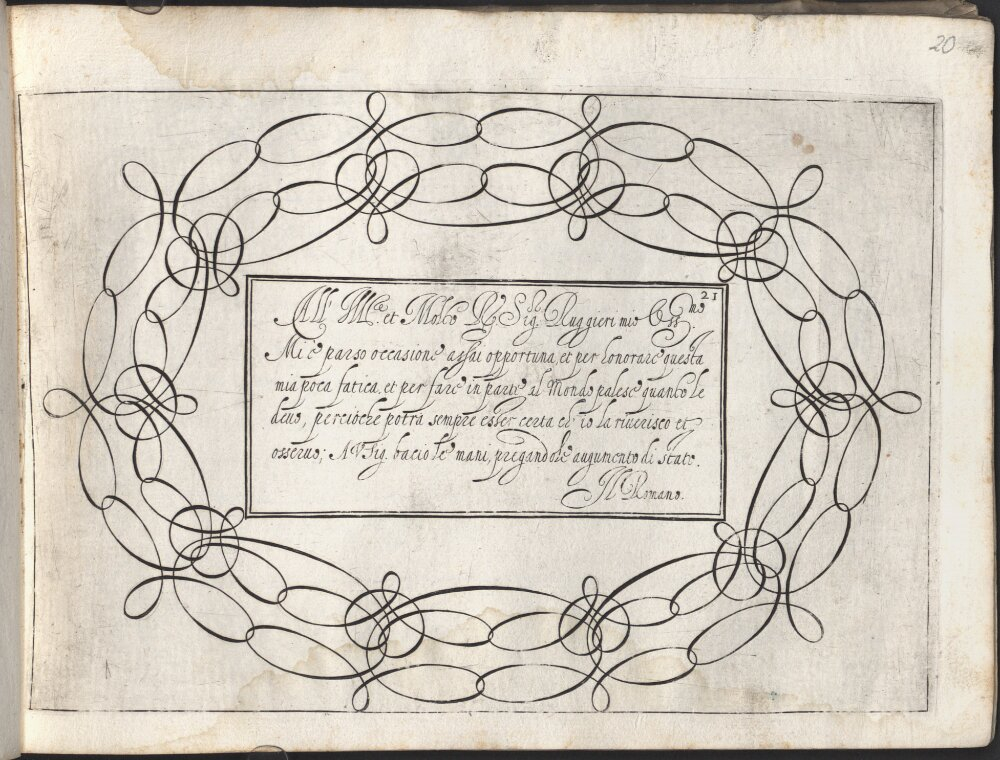 20
21
All' Ill.re et Molto R. Sig. Ruggieri mio Oss.mo
Mi è parso occasione assai opportuna, et per honorare questa
mia poca fatica, et per fare in parte al Mondo palese quanto le
deuo, percioche potrà sempre esser certa ch' io la riuerisco et
osseruo; A V. Sig. bacio le mani, pregandole augumento di stato.
Il Romano.